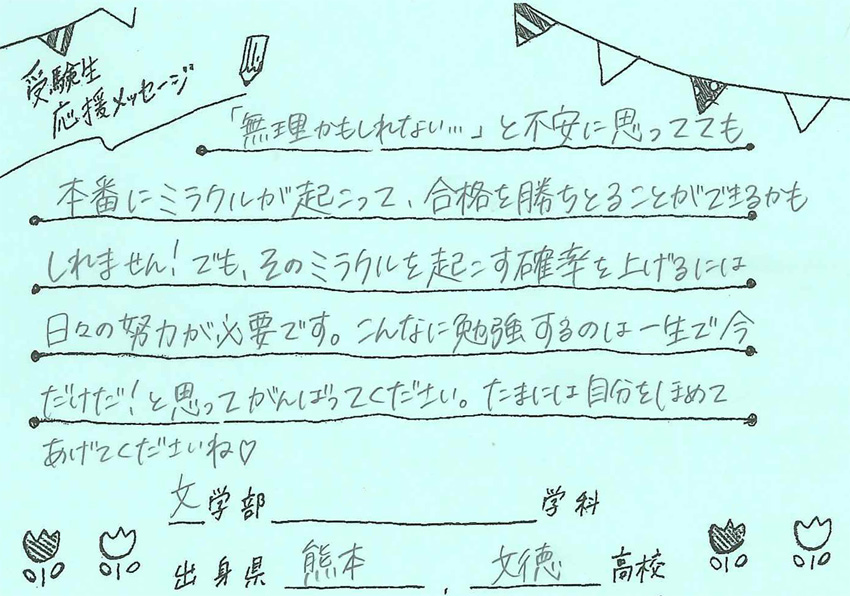 受験生
応援メッセージ
「無理かもしれない…」と不安に思ってても
本番にミラクルが起こって、合格を勝ちとることができるかも
しれません！でも、そのミラクルを起こす確率を上げるには
日々の努力が必要です。こんなに勉強するのは一生で今
だけだ！と思ってがんばってください。たまには自分をほめて
あげてくださいね♡
文学部 学科
出身県 熊本 , 文徳 高校